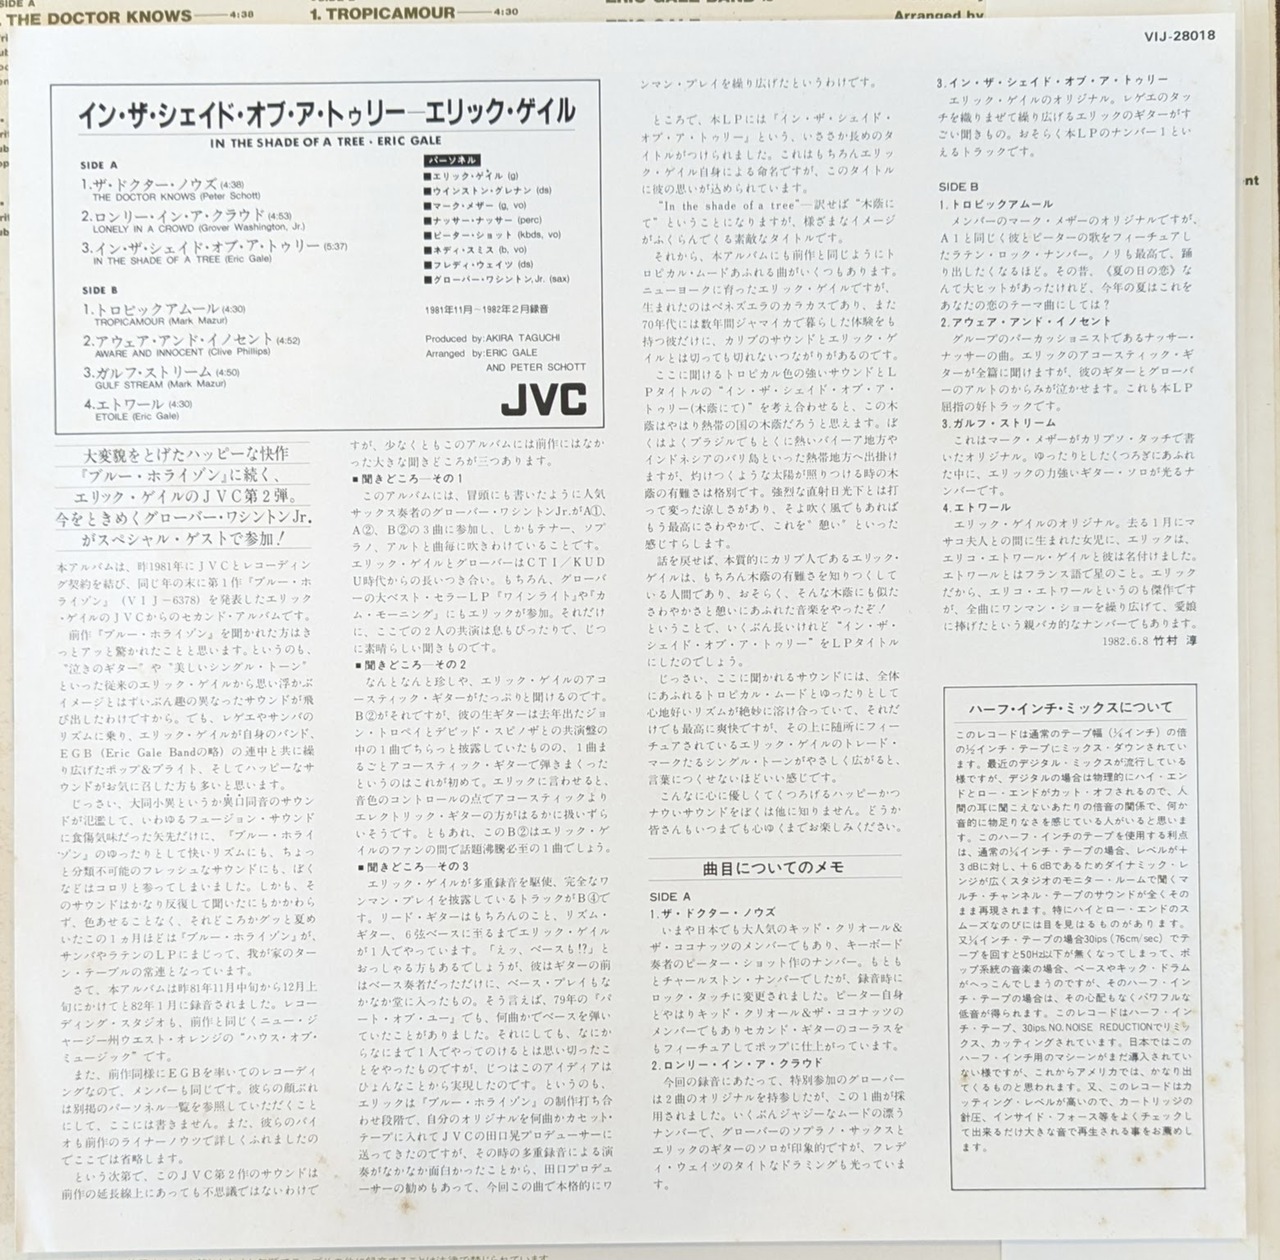 SIDE A
THE DOCTOR KNOWS——4:38
1. TROPICAMOUR——4:30
Arranged by
VIJ-28018
イン・ザ・シェイド・オブ・ア・トゥリー—エリック・ゲイル
IN THE SHADE OF A TREE・ERIC GALE
SIDE A
1.ザ・ドクター・ノウズ(4:38)
THE DOCTOR KNOWS (Peter Schott)
2.ロンリー・イン・ア・クラウド(4:53)
LONELY IN A CROWD (Grover Washington, Jr.)
3.イン・ザ・シェイド・オブ・ア・トゥリー(5:37)
IN THE SHADE OF A TREE (Eric Gale)
SIDE B
1.トロピックアムール(4:30)
TROPICAMOUR (Mark Mazur)
2.アウェア・アンド・イノセント(4:52)
AWARE AND INNOCENT (Clive Phillips)
3.ガルフ・ストリーム(4:50)
GULF STREAM (Mark Mazur)
4.エトワール(4:30)
ETOILE (Eric Gale)
パーソネル
■エリック・ゲイル (g)
■ウインストン・グレナン (ds)
■マーク・メザー (g, vo)
■ナッサー・ナッサー (perc)
■ピーター・ショット (kbds, vo)
■ネディ・スミス (b, vo)
■フレディ・ウェイツ (ds)
■グローバー・ワシントン,Jr. (sax)
1981年11月〜1982年2月録音
Produced by:AKIRA TAGUCHI
Arranged by:ERIC GALE
AND PETER SCHOTT
JVC
大変貌をとげたハッピーな快作
『ブルー・ホライゾン』に続く、
エリック・ゲイルのJVC第2弾。
今をときめくグローバー・ワシントンJr.
がスペシャル・ゲストで参加!
本アルバムは、昨1981年にJVCとレコーディン
グ契約を結び、同じ年の末に第1作『ブルー・ホ
ライゾン』(VIJ-6378)を発表したエリック
・ゲイルのJVCからのセカンド・アルバムです。
前作『ブルー・ホライゾン』を聞かれた方はき
っとアッと驚かれたことと思います。というのも、
"泣きのギター"や"美しいシングル・トーン"
といった従来のエリック・ゲイルから思い浮かぶ
イメージとはずいぶん趣の異なったサウンドが飛
び出したわけですから。でも、レゲエやサンバの
リズムに乗り、エリック・ゲイルが自身のバンド、
EGB (Eric Gale Bandの略) の連中と共に繰
り広げたポップ&ブライト、そしてハッピーなサ
ウンドがお気に召した方も多いと思います。
じっさい、大同小異というか異口同音のサウン
ドが氾濫して、いわゆるフュージョン・サウンド
に食傷気味だった矢先だけに、『ブルー・ホライ
ゾン』のゆったりとして快いリズムにも、ちょっ
と分類不可能のフレッシュなサウンドにも、ぼく
などはコロリと参ってしまいました。しかも、そ
のサウンドはかなり反復して聞いたにもかかわら
ず、色あせることなく、それどころかグッと夏め
いたこの1ヵ月ほどは『ブルー・ホライゾン』が、
サンバやラテンのLPにまじって、我が家のター
ン・テーブルの常連となっています。
さて、本アルバムは昨81年11月中旬から12月上
旬にかけてと82年1月に録音されました。レコー
ディング・スタジオも、前作と同じくニュー・ジ
ャージー州ウエスト・オレンジの"ハウス・オブ・
ミュージック"です。
また、前作同様にEGBを率いてのレコーディ
ングなので、メンバーも同じです。彼らの顔ぶれ
は別掲のパーソネル一覧を参照していただくこと
にして、ここには書きません。また、彼らのバイ
オも前作のライナーノウツで詳しくふれましたの
でここでは省略します。
という次第で、このJVC第2作のサウンドは
前作の延長線上にあっても不思議ではないわけで
すが、少なくともこのアルバムには前作にはなか
った大きな聞きどころが三つあります。
■聞きどころ—その1
このアルバムには、冒頭にも書いたように人気
サックス奏者のグローバー・ワシントンJr.がA①、
A②、B②の3曲に参加し、しかもテナー、ソプ
ラノ、アルトと曲毎に吹きわけていることです。
エリック・ゲイルとグローバーはCTI/KUD
U時代からの長いつき合い。もちろん、グローバ
ーの大ベスト・セラーLP『ワインライト』や『カ
ム・モーニング』にもエリックが参加。それだけ
に、ここでの2人の共演は息もぴったりで、じつ
に素晴らしい聞きものです。
■聞きどころ—その2
なんとなんと珍しや、エリック・ゲイルのアコ
ースティック・ギターがたっぷりと聞けるのです。
B②がそれですが、彼の生ギターは去年出たジョ
ン・トロペイとデビッド・スピノザとの共演盤の
中の1曲でちらっと披露していたものの、1曲ま
るごとアコースティック・ギターで弾きまくった
というのはこれが初めて。エリックに言わせると、
音色のコントロールの点でアコースティックより
エレクトリック・ギターの方がはるかに扱いずら
いそうです。ともあれ、このB②はエリック・ゲ
イルのファンの間で話題沸騰必至の1曲でしょう。
■聞きどころ—その3
エリック・ゲイルが多重録音を駆使、完全なワ
ンマン・プレイを披露しているトラックがB④で
す。リード・ギターはもちろんのこと、リズム・
ギター、6弦ベースに至るまでエリック・ゲイル
が1人でやっています。「えッ、ベースも!?」と
おっしゃる方もあるでしょうが、彼はギターの前
はベース奏者だっただけに、ベース・プレイもな
かなか堂に入ったもの。そう言えば、79年の『パ
ート・オブ・ユー』でも、何曲かでベースを弾い
ていたことがありました。それにしても、なにか
らなにまで1人でやってのけるとは思い切ったこ
とをやったものですが、じつはこのアイディアは
ひょんなことから実現したのです。というのも、
エリックは『ブルー・ホライゾン』の制作打ち合
わせ段階で、自分のオリジナルを何曲かカセット・
テープに入れてJVCの田口晃プロデューサーに
送ってきたのですが、その時の多重録音による演
奏がなかなか面白かったことから、田口プロデュ
ーサーの勧めもあって、今回この曲で本格的にワ
ンマン・プレイを繰り広げたというわけです。
ところで、本LPには『イン・ザ・シェイド・
オブ・ア・トゥリー』という、いささか長めのタ
イトルがつけられました。これはもちろんエリッ
ク・ゲイル自身による命名ですが、このタイトル
に彼の思いが込められています。
"In the shade of a tree"—訳せば"木蔭に
て"ということになりますが、様ざまなイメージ
がふくらんでくる素敵なタイトルです。
それから、本アルバムにも前作と同じようにト
ロピカル・ムードあふれる曲がいくつもあります。
ニューヨークに育ったエリック・ゲイルですが、
生まれたのはベネズエラのカラカスであり、また
70年代には数年間ジャマイカで暮らした体験をも
持つ彼だけに、カリブのサウンドとエリック・ゲ
イルとは切っても切れないつながりがあるのです。
ここに聞けるトロピカル色の強いサウンドとL
Pタイトルの"イン・ザ・シェイド・オブ・ア・
トゥリー(木蔭にて)"を考え合わせると、この木
蔭はやはり熱帯の国の木蔭だろうと思えます。ぼ
くはよくブラジルでもとくに熱いバイーア地方や
インドネシアのバリ島といった熱帯地方へ出掛け
ますが、灼けつくような太陽が照りつける時の木
蔭の有難さは格別です。強烈な直射日光下とは打
って変った涼しさがあり、そよ吹く風でもあれば
もう最高にさわやかで、これを"憩い"といった
感じすらします。
話を戻せば、本質的にカリブ人であるエリック・
ゲイルは、もちろん木蔭の有難さを知りつくして
いる人間であり、おそらく、そんな木蔭にも似た
さわやかさと憩いにあふれた音楽をやったぞ!
ということで、いくぶん長いけれど"イン・ザ・
シェイド・オブ・ア・トゥリー"をLPタイトル
にしたのでしょう。
じっさい、ここに聞かれるサウンドには、全体
にあふれるトロピカル・ムードとゆったりとして
心地好いリズムが絶妙に溶け合っていて、それだ
けでも最高に爽快ですが、その上に随所にフィー
チュアされているエリック・ゲイルのトレード・
マークたるシングル・トーンがやさしく広がると、
言葉につくせないほどいい感じです。
こんなに心に優しくてくつろげるハッピーかつ
ナウいサウンドをぼくは他に知りません。どうか
皆さんもいつまでも心ゆくまでお楽しみください。
曲目についてのメモ
SIDE A
1.ザ・ドクター・ノウズ
いまや日本でも大人気のキッド・クリオール&
ザ・ココナッツのメンバーでもあり、キーボード
奏者のピーター・ショット作のナンバー。もとも
とチャールストン・ナンバーでしたが、録音時に
ロック・タッチに変更されました。ピーター自身
とやはりキッド・クリオール&ザ・ココナッツの
メンバーでもありセカンド・ギターのコーラスを
もフィーチュアしてポップに仕上がっています。
2.ロンリー・イン・ア・クラウド
今回の録音にあたって、特別参加のグローバー
は2曲のオリジナルを持参したが、この1曲が採
用されました。いくぶんジャジーなムードの漂う
ナンバーで、グローバーのソプラノ・サックスと
エリックのギターのソロが印象的ですが、フレデ
ィ・ウェイツのタイトなドラミングも光っていま
す。
3.イン・ザ・シェイド・オブ・ア・トゥリー
エリック・ゲイルのオリジナル。レゲエのタッ
チを織りまぜて繰り広げるエリックのギターがす
ごい聞きもの。おそらく本LPのナンバー1とい
えるトラックです。
SIDE B
1.トロピックアムール
メンバーのマーク・メザーのオリジナルですが、
A1と同じく彼とピーターの歌をフィーチュアし
たラテン・ロック・ナンバー。ノリも最高で、踊
り出したくなるほど。その昔、《夏の日の恋》な
んて大ヒットがあったけれど、今年の夏はこれを
あなたの恋のテーマ曲にしては?
2.アウェア・アンド・イノセント
グループのパーカッショニストであるナッサー・
ナッサーの曲。エリックのアコースティック・ギ
ターが全篇に聞けますが、彼のギターとグローバ
ーのアルトのからみが泣かせます。これも本LP
屈指の好トラックです。
3.ガルフ・ストリーム
これはマーク・メザーがカリプソ・タッチで書
いたオリジナル。ゆったりとしたくつろぎにあふれ
た中に、エリックの力強いギター・ソロが光るナ
ンバーです。
4.エトワール
エリック・ゲイルのオリジナル。去る1月にマ
サコ夫人との間に生まれた女児に、エリックは、
エリコ・エトワール・ゲイルと彼は名付けました。
エトワールとはフランス語で星のこと。エリック
だから、エリコ・エトワールというのも傑作です
が、全曲にワンマン・ショーを繰り広げて、愛娘
に捧げたという親バカ的なナンバーでもあります。
1982.6.8 竹村 淳
ハーフ・インチ・ミックスについて
このレコードは通常のテープ幅(¼インチ)の倍
の½インチ・テープにミックス・ダウンされてい
ます。最近のデジタル・ミックスが流行している
様ですが、デジタルの場合は物理的にハイ・エン
ドとロー・エンドがカット・オフされるので、人
間の耳に聞こえないあたりの倍音の関係で、何か
音的に物足りなさを感じている人がいると思いま
す。このハーフ・インチのテープを使用する利点
は、通常の¼インチ・テープの場合、レベルが+
3dBに対し、+6dBであるためダイナミック・レ
ンジが広くスタジオのモニター・ルームで聞くマ
ルチ・チャンネル・テープのサウンドが全くその
まま再現されます。特にハイとロー・エンドのス
ムーズなのびには目を見はるものがあります。
又¼インチ・テープの場合30ips(76cm/sec)でテ
ープを回すと50Hz以下が無くなってしまって、ポ
ップ系統の音楽の場合、ベースやキック・ドラム
がへっこんでしまうのですが、そのハーフ・イン
チ・テープの場合は、その心配もなくパワフルな
低音が得られます。このレコードはハーフ・イン
チ・テープ、30ips.NO.NOISE REDUCTIONでリミッ
クス、カッティングされています。日本ではこの
ハーフ・インチ用のマシーンがまだ導入されてい
ない様ですが、これからアメリカでは、かなり出
てくるものと思われます。又、このレコードはカ
ッティング・レベルが高いので、カートリッジの
針圧、インサイド・フォース等をよくチェックし
て出来るだけ大きな音で再生される事をお薦めし
ます。